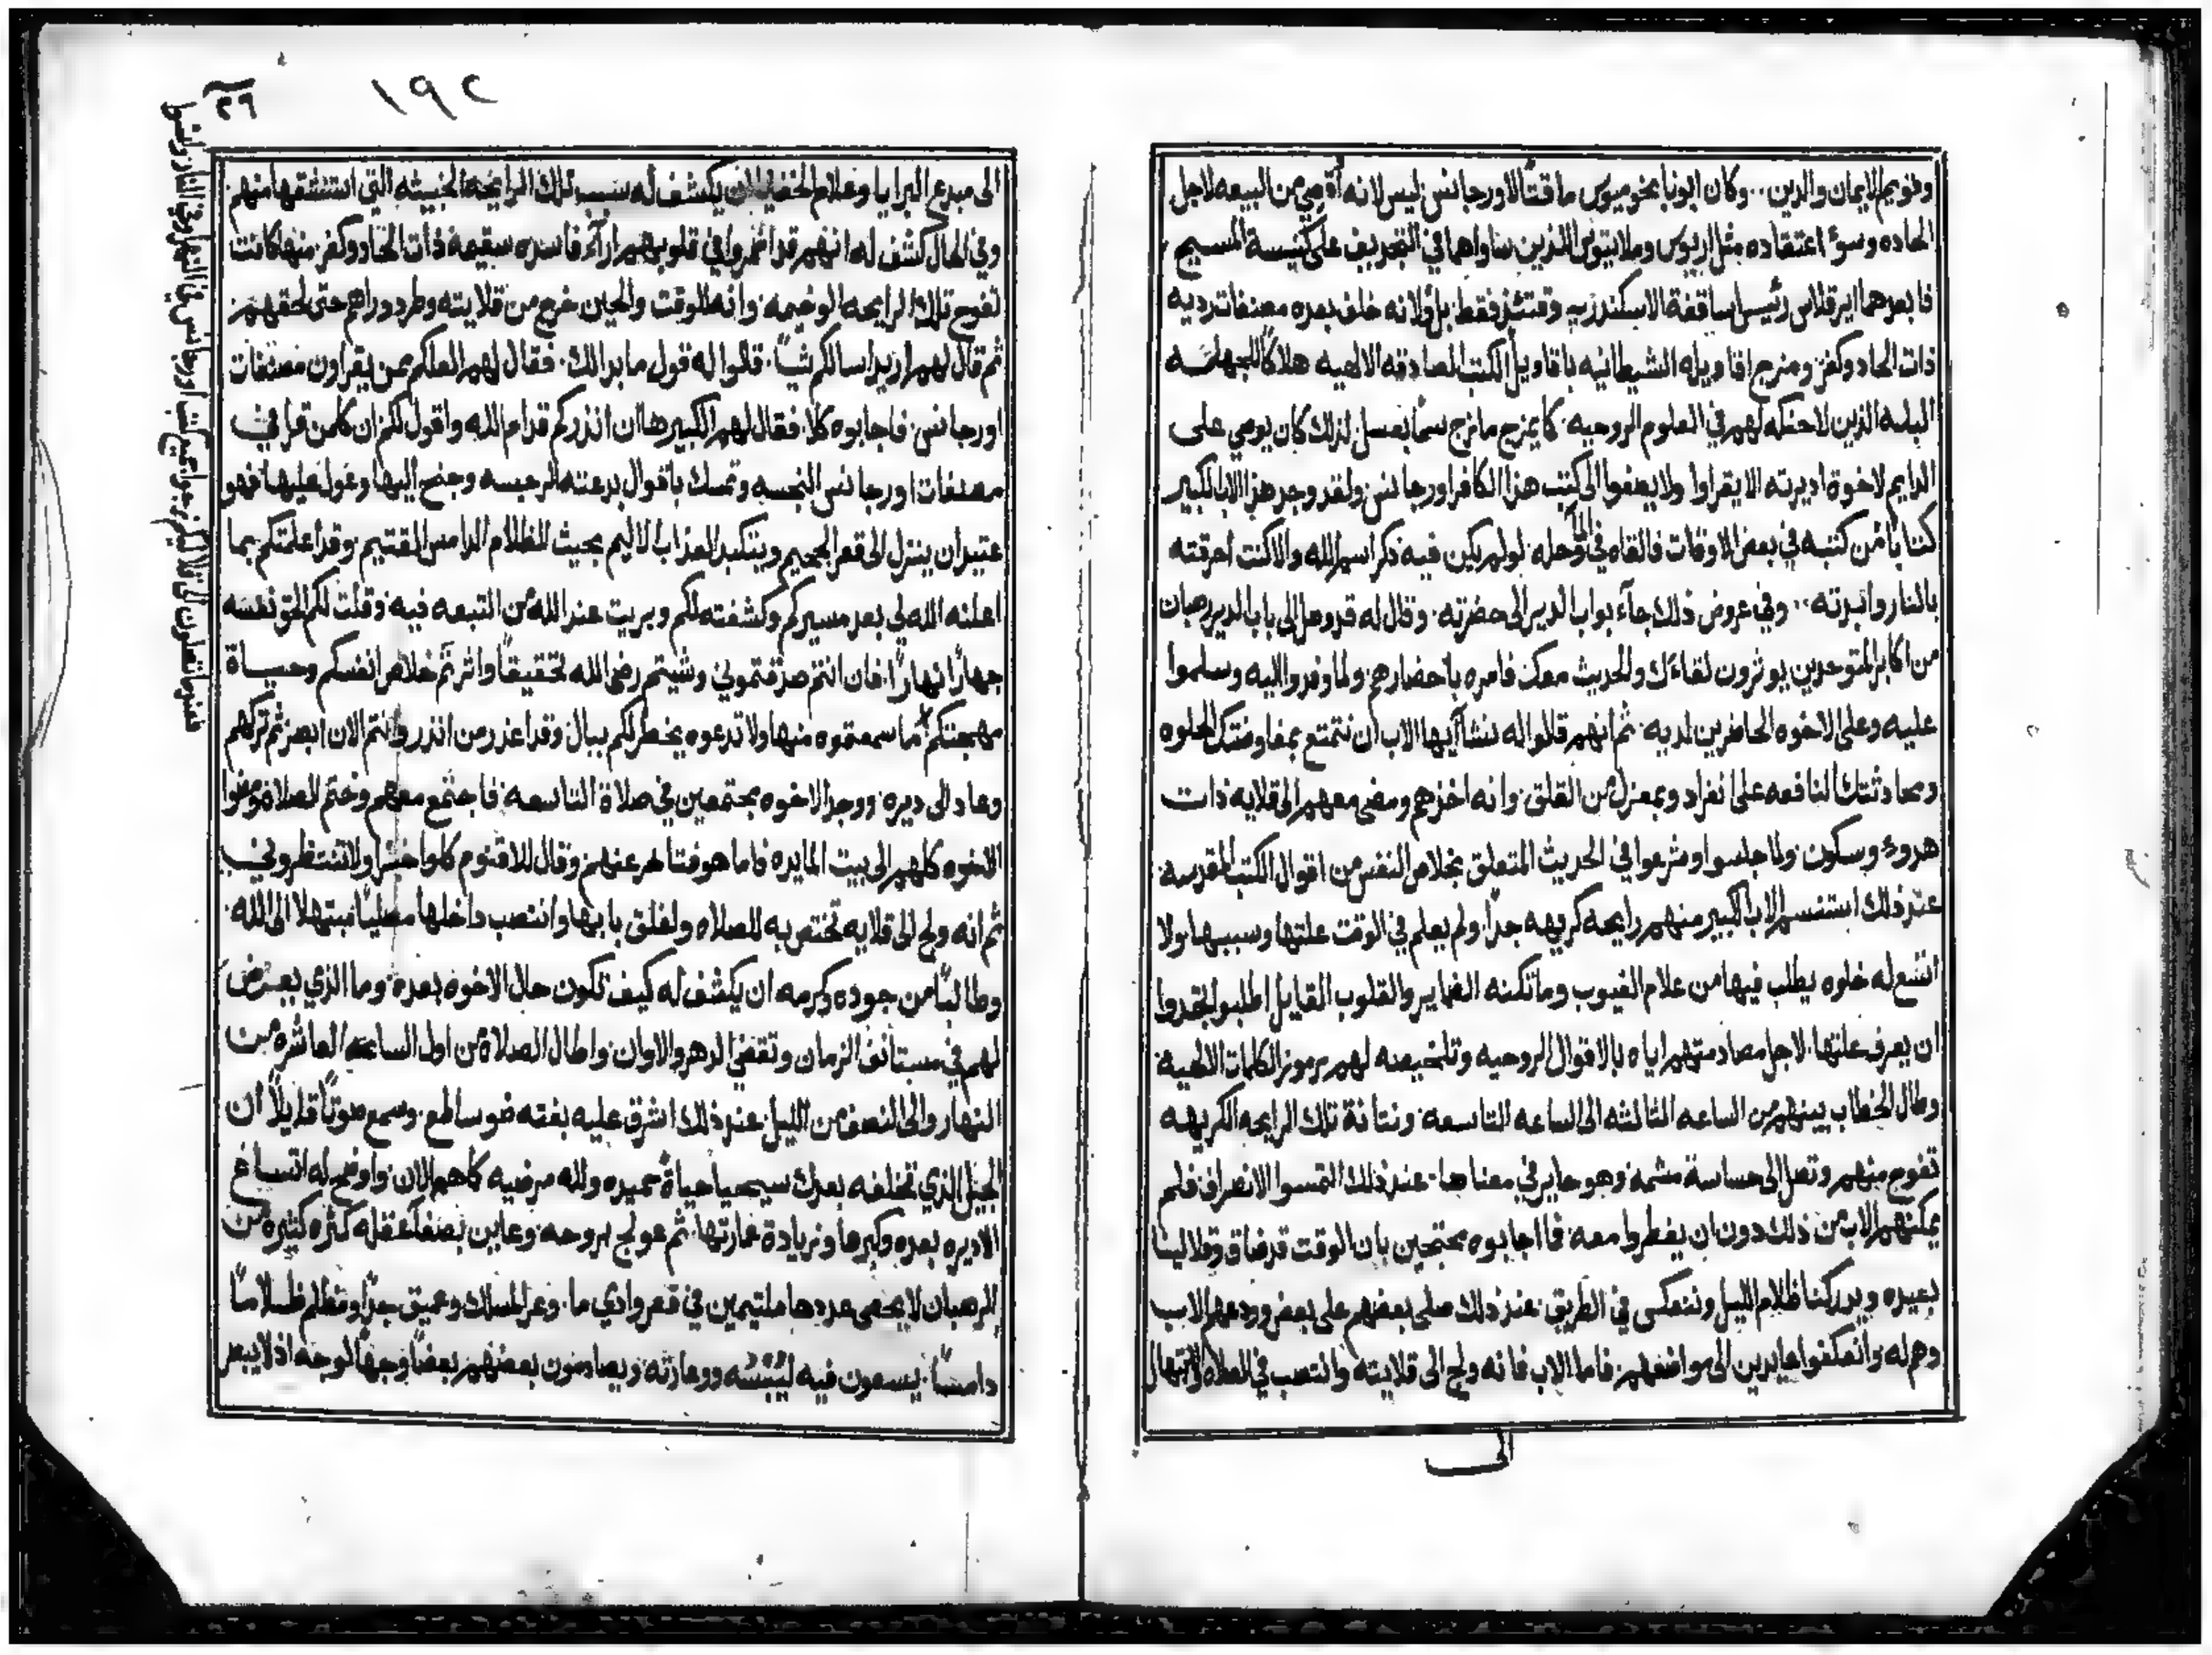 وقويم الايمان والدين ٠٠ وكان ابونا بخوميوس ماقتًا لاورجانس ليس لانه أُقصي من البيعه لاجل
الحاده وسوء اعتقاده مثل اريوس وملاتيوس الذين ساواهما في التجديف على كنيسة المسيح
فابعدهما ايرقلاس رئيس اساقفة الاسكندريه وقتئذٍ فقط بل ولانه خلف بعده مصنفات رديه
ذات الحاد وكفر ومزج اقاويله الشيطانيه باقاويل الكتب الصادقه الالهيه هلاكًا للجهلـه
البله الذين لا حنكه لهم في العلوم الروحيه كما يمزج مازج سمًا بعسل لذلك كان يومي على
الدايم لاخوة اديرته الا يقراوا ولا يصغوا الى كتب هذا الكافر اورجانس ولقد وجد هذا الاب الكبير
كتابًا من كتبه في بعض الاوقات فالقاه في الماء وقال لو لم يكن فيه ذكر اسم الله والا كنت احرقته
بالنار وابدته ٠٠ وفي عروض ذلك جاء بواب الدير الى حضرته وقال له قد وصل الى باب الدير رهبان
من اكابر المتوحدين يوثرون لقاءك والحديث معك فامره باحضارهم ولما وفدوا اليه وسلموا
عليه وعلى الاخوه الحاضرين لديه ثم انهم قالوا له نشا ايها الاب ان نتمتع بمفاوضتك الحلوه
ومحادثتك النافعه على انفراد وبمعزل من القلق وانه اخذهم ومضى معهم الى قلايه ذات
هدوء وسكون ولما جلسوا وشرعوا في الحديث المتعلق بخلاص النفس من اقوال الكتب المقدسه
عند ذلك استنسم الاب الكبير منهم رايحه كريهه جدًا ولم يعلم في الوقت علتها وسببها ولا
اتسع له خلوه يطلب فيها من علام الغيوب وما تكنه الضماير والقلوب القايل اطلبوا تجدوا
ان يعرف علتها لاجل مصادمتهم اياه بالاقوال الروحيه وتلخيصه لهم رموز الكلمات الالهيه
وطال الخطاب بينهم من الساعه الثالثه الى الساعه التاسعه ونتانة تلك الرايحه الكريهه
تفوح منهم وتصل الى حساسة مشمه وهو حاير في معناها عند ذلك التمسوا الانصراف فلم
يمكنهم الاب من ذلك دون ان يفطروا معه فما اجابوه محتجين بان الوقت قد ضاق وقلالينا
بعيده ويدركنا ظلام الليل وننعكس في الطريق عند ذلك صلى بعضهم على بعض وودعهم الاب
وهم له وانعكفوا عايدين الى مواضعهم فاما الاب فانه ولج الى قلايته وانتصب في الصلاه والابتهال
الى
١٩٢
٣٩
الى مبدع البرايا وعلام الخفايا ان يكشف له سبب تلك الرايحه الخبيثه التي استنشقها منهم
وفي الحال كشف له انهم قد اضمروا في قلوبهم اراءً فاسده سقيمه ذات الحاد وكفر منها كانت
تفوح تلك الرايحه الوخيمه وانه للوقت والحين خرج من قلايته وطرد وراهم حتى لحقهم
ثم قال لهم اريد اسالكم شيًا قالوا له قول ما بدا لك فقال لهم العلكم ممن يقراون مصنفات
اورجانس فاجابوه كلا فقال لهم الكبير ها ان انذركم قدام الله واقول لكم ان كلمن قرا في
مصنفات اورجانس النجسه وتمسك باقوال بدعته الرجسه وجنح اليها وعول عليها فهو
عتيد ان ينزل الى قعر الجحيم ويتكبد العذاب الاليم بحيث الظلام الدامس القتيم وقد اعلمتكم بما
اعلنه الله لي بعد مسيركم وكشفته لكم وبريت عند الله من التبعه فيه وقلت لكم الحق نفسه
جهارًا نهارًا فان انتم صدقتموني وشيتم رضى الله تحقيقًا واثرتم خلاص انفسكم وحيـاة
مهجتكم ما سمعتموه منها ولا تدعوه يخطر لكم ببال وقد اعذر من انذر وانتم الان ابصر ثم تركهم
وعاد الى ديره ووجد الاخوه مجتمعين في صلاة التاسعه فاجتمع معهم وختم الصلاة ومضوا
الاخوه كلهم الى بيت المايده فاما هو فتاخر عنهم وقال للاقنوم كلوا خبزًا ولا تنتظروني
ثم انه ولج الى قلايه تختص به للصلاه واغلق بابها وانتصب داخلها مصليًا مبتهلا الى الله
وطالبًا من جوده وكرمه ان يكشف له كيف تكون حال الاخوه بعده وما الذي يعرض
لهم في مستانف الزمان وتقضي الدهر والاوان واطال الصلاة من اول الساعه العاشره من
النهار والى النصف من الليل عند ذلك اشرق عليه بغته ضو ساطع وسمع صوتًا قايلاً ان
الجيل الذي تخلفه بعدك سيحيا حياةً حميده ولله مرضيه كما هم الان واوضح له اتساع
الاديره بعده وكبرها وزيادة عمارتها ثم عولج بروحه وعاين بصفاء عقله كثره كثيره من
الرهبان لا يحصى عددها ملتيمين في قعر وادي ما وعر المسلك وعميق جدًا ومظلم ظلامًا
دامسًا يسعون فيه ليبسه ووعارته ويصادمون بعضهم بعضًا وجهًا لوجه اذ لا يبصر